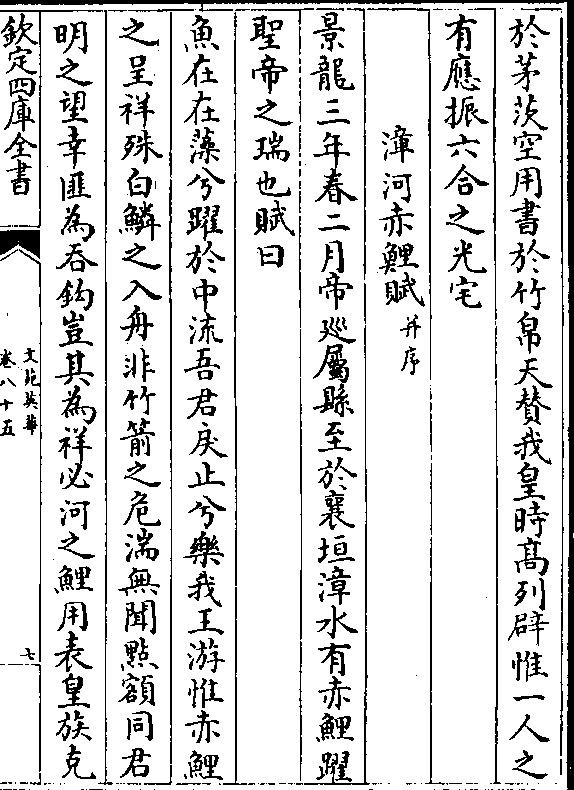 於茅茨空用書於竹帛天賛我皇時髙列辟惟一人之
有應振六合之光宅
漳河赤鯉賦并序
景龍三年春二月帝廵屬縣至於襄垣漳水有赤鯉躍
聖帝之瑞也賦曰
魚在在藻兮躍於中流吾君戾止兮樂我王游惟赤鯉
之呈祥殊白鱗之入舟非竹箭之危湍無聞㸃額同君
明之望幸匪為吞鈎豈其為祥必河之鯉用表皇族克
欽定四庫全書
文苑英華
卷八十五
七